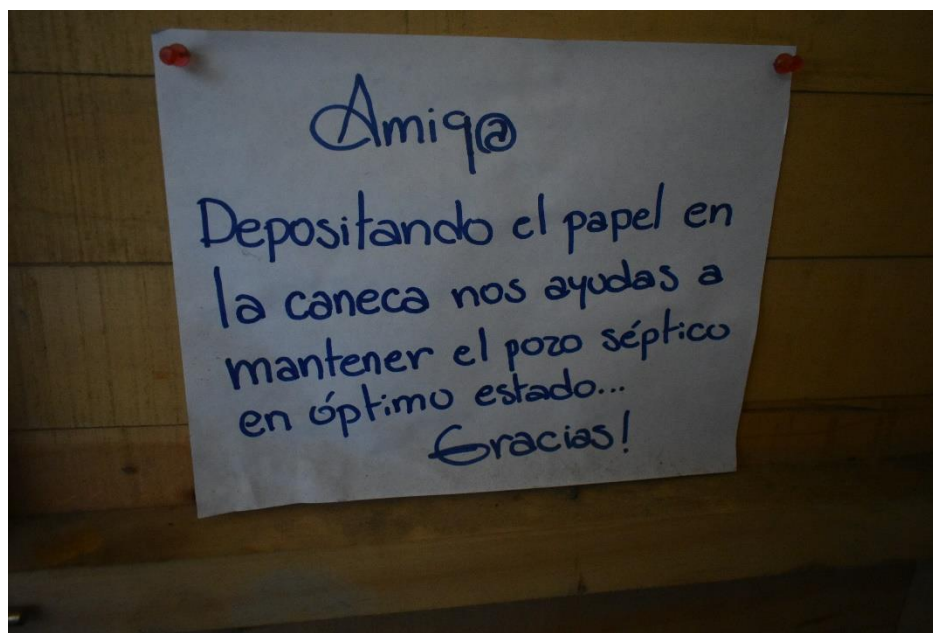 Amig@
Depositando el papel en
la caneca nos ayudas a
mantener el pozo séptico
en óptimo estado...
Gracias!